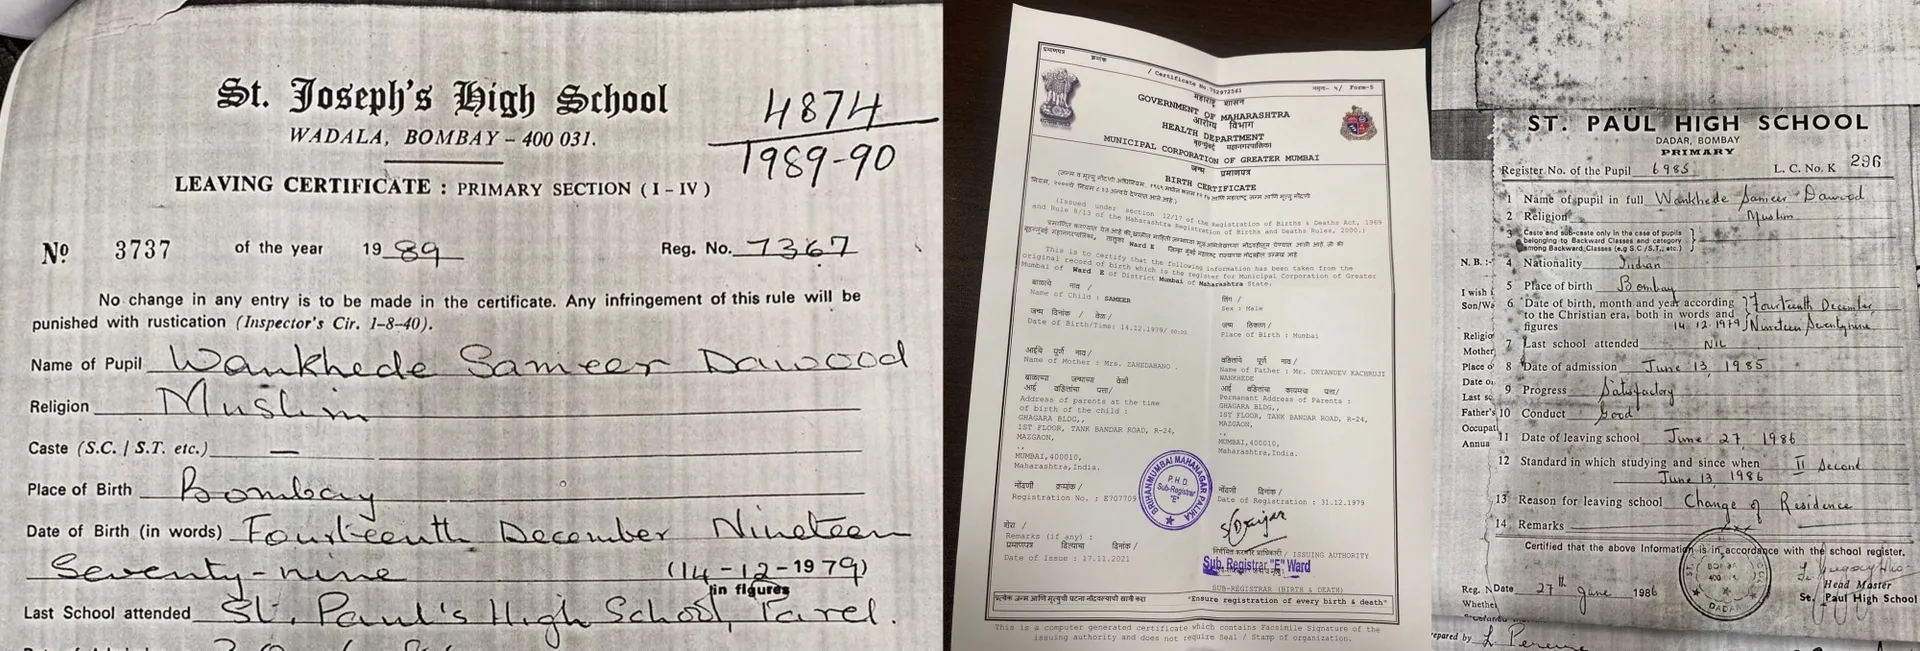 St. Joseph's High School
WADALA, BOMBAY - 400 031.
4874
1989-90
LEAVING CERTIFICATE : PRIMARY SECTION ( I - IV )
Nº 3737 of the year 1989 Reg. No. 7367
No change in any entry is to be made in the certificate. Any infringement of this rule will be
punished with rustication (Inspector's Cir. 1-8-40).
Name of Pupil Wankhede Sameer Dawood
Religion Muslim
Caste (S.C. / S.T. etc.) —
Place of Birth Bombay
Date of Birth (in words) Fourteenth December Nineteen
Seventy-nine (14-12-1979)
in figures
Last School attended St. Paul's High School, Parel.
प्रमाणपत्र
क्रमांक / Certificate No.
नमुना- ५/ Form-5
महाराष्ट्र शासन
GOVERNMENT OF MAHARASHTRA
आरोग्य विभाग
HEALTH DEPARTMENT
बृहन्मुंबई महानगरपालिका
MUNICIPAL CORPORATION OF GREATER MUMBAI
जन्म प्रमाणपत्र
BIRTH CERTIFICATE
(Issued under section 12/17 of the Registration of Births & Deaths Act, 1969
and Rule 8/13 of the Maharashtra Registration of Births and Deaths Rules, 2000.)
This is to certify that the following information has been taken from the
original record of birth which is the register for Municipal Corporation of Greater
Mumbai of Ward E of District Mumbai of Maharashtra State.
बाळाचे नाव /
Name of Child : SAMEER
लिंग /
Sex : Male
जन्म दिनांक / वेळ /
Date of Birth/Time: 14.12.1979/ 00:00
जन्म ठिकाण /
Place of Birth : Mumbai
आईचे पूर्ण नाव /
Name of Mother : Mrs. ZAHEDABANO .
वडिलांचे पूर्ण नाव /
Name of Father : Mr. DNYANDEV KACHRUJI
WANKHEDE
बाळाच्या जन्माच्या वेळी
आई वडिलांचा पत्ता/
Address of parents at the time
of birth of the child :
GHAGARA BLDG,,
1ST FLOOR, TANK BANDAR ROAD, R-24,
MAZGAON,
..
MUMBAI,400010,
Maharashtra,India.
आई वडिलांचा कायमचा पत्ता/
Permanent Address of Parents :
GHAGARA BLDG,,
1ST FLOOR, TANK BANDAR ROAD, R-24,
MAZGAON,
..
MUMBAI,400010,
Maharashtra,India.
नोंदणी क्रमांक /
Registration No. : E707709
नोंदणी दिनांक /
Date of Registration : 31.12.1979
BRIHANMUMBAI MAHANAGAR PALIKA
P.H.D.
Sub-Registrar
"E"
शेरा /
Remarks (if any) :
प्रमाणपत्र दिल्याचा दिनांक /
Date of Issue : 17.11.2021
ISSUING AUTHORITY
Sub. Registrar "E" Ward
SUB-REGISTRAR (BIRTH & DEATH)
"Ensure registration of every birth & death"
This is a computer generated certificate which contains Facsimile Signature of the
issuing authority and does not require Seal / Stamp of organization.
ST. PAUL HIGH SCHOOL
DADAR, BOMBAY
PRIMARY
Register No. of the Pupil 6985 L. C. No. K 296
1 Name of pupil in full Wankhede Sameer Dawood
2 Religion Muslim
3 Caste and sub-caste only in the case of pupils
belonging to Backward Classes and category
among Backward Classes (e.g S.C /S.T., etc.)
N. B. :- 4 Nationality Indian
I wish 5 Place of birth Bombay
6 Date of birth, month and year according Fourteenth December
to the Christian era, both in words and
figures 14.12.1979 Nineteen Seventynine
7 Last school attended NIL
8 Date of admission June 13, 1985
9 Progress Satisfactory
10 Conduct Good
11 Date of leaving school June 27, 1986
12 Standard in which studying and since when II Second
June 13, 1986
13 Reason for leaving school Change of Residence
14 Remarks
Certified that the above Information is in accordance with the school register.
Date 27th June 1986
Head Master
St. Paul High School
DADAR